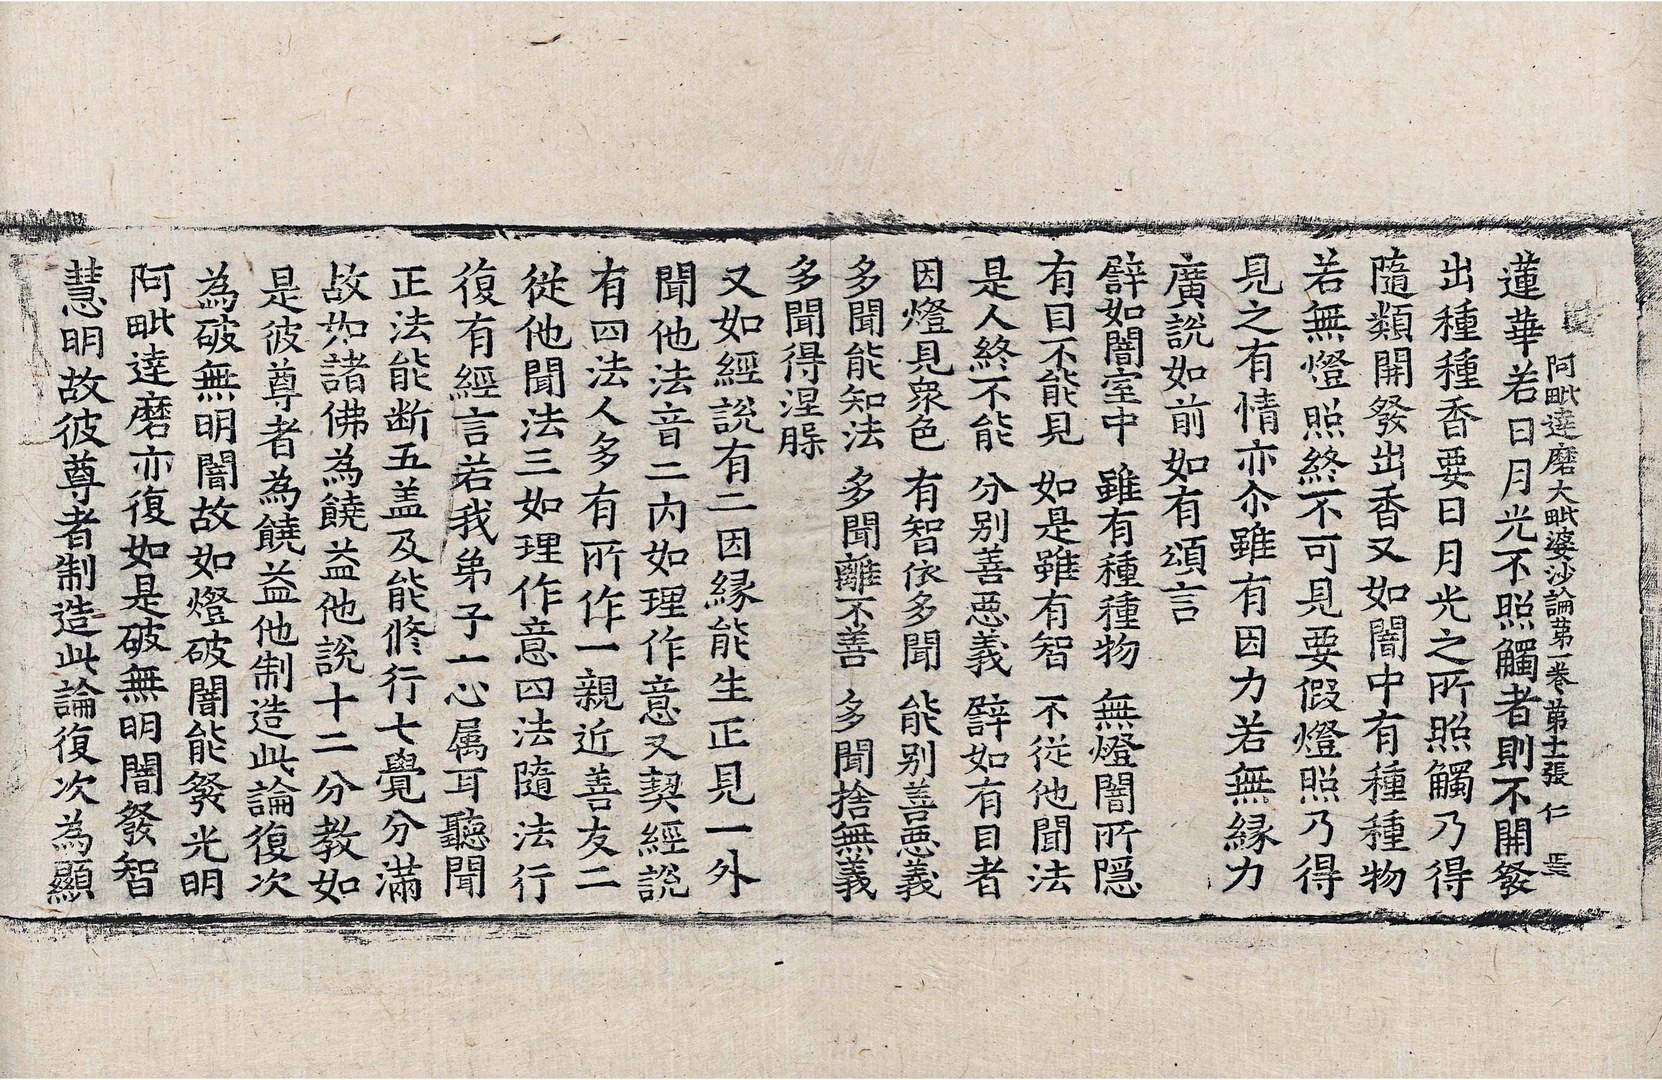 阿毗達磨大毗婆沙論苐一卷 苐十二張 仁
蓮華若日月光不照觸者則不開發
出種種香要日月光之所照觸乃得
隨類開發出香又如闇中有種種物
若無燈照終不可見要假燈照乃得
見之有情亦尒雖有因力若無緣力
廣說如前如有頌言
譬如闇室中 雖有種種物 無燈闇所隱
有目不能見 如是雖有智 不從他聞法
是人終不能 分別善惡義 譬如有目者
因燈見衆色 有智依多聞 能別善惡義
多聞能知法 多聞離不善 多聞捨無義
多聞得涅槃
又如經說有二因緣能生正見一外
聞他法音二內如理作意又契經說
有四法人多有所作一親近善友二
從他聞法三如理作意四法隨法行
復有經言若我弟子一心属耳聽聞
正法能断五盖及能修行七覺分滿
故如諸佛為饒益他說十二分教如
是彼尊者為饒益他制造此論復次
為破無明闇故如燈破闇能發光明
阿毗達磨亦復如是破無明闇發智
慧明故彼尊者制造此論復次為顯